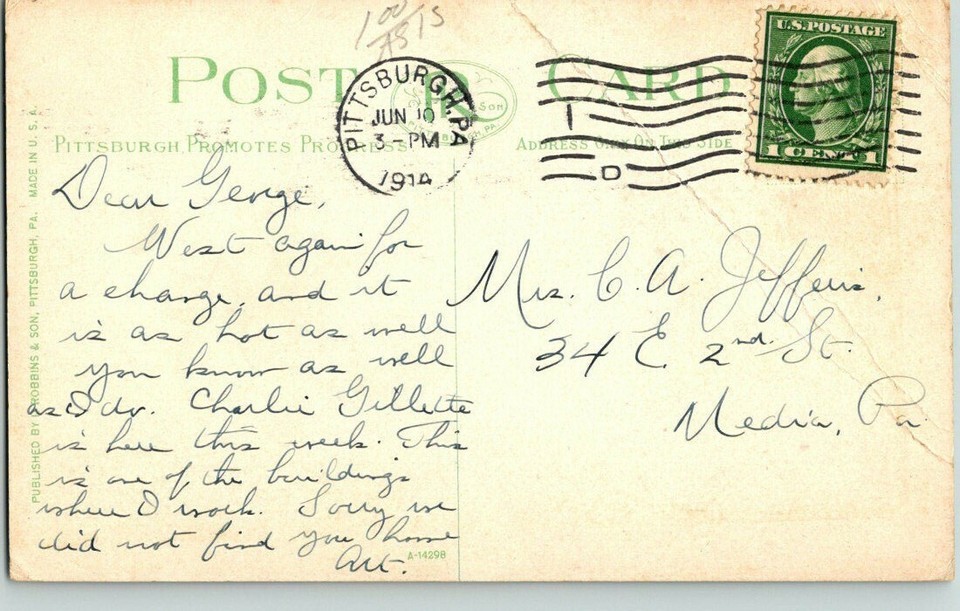 1 00
A515
POST CARD
Son
PITTSBURGH, PA.
PITTSBURGH PROMOTES PROGRESS
ADDRESS ONLY ON THIS SIDE
PITTSBURGH, PA
JUN 10
3 PM
1914
1
D
U.S. POSTAGE
1 CENT 1
Dear George,
West again for
a change, and it
is as hot as well
you know as well
as I do. Charlie Gillette
is here this week. This
is one of the buildings
where I work. Sorry we
did not find you home
Art.
Mrs. C. A. Jefferis,
34 E. 2nd. St.
Media, Pa.
PUBLISHED BY ROBBINS & SON, PITTSBURGH, PA. MADE IN U. S. A.
A-14298